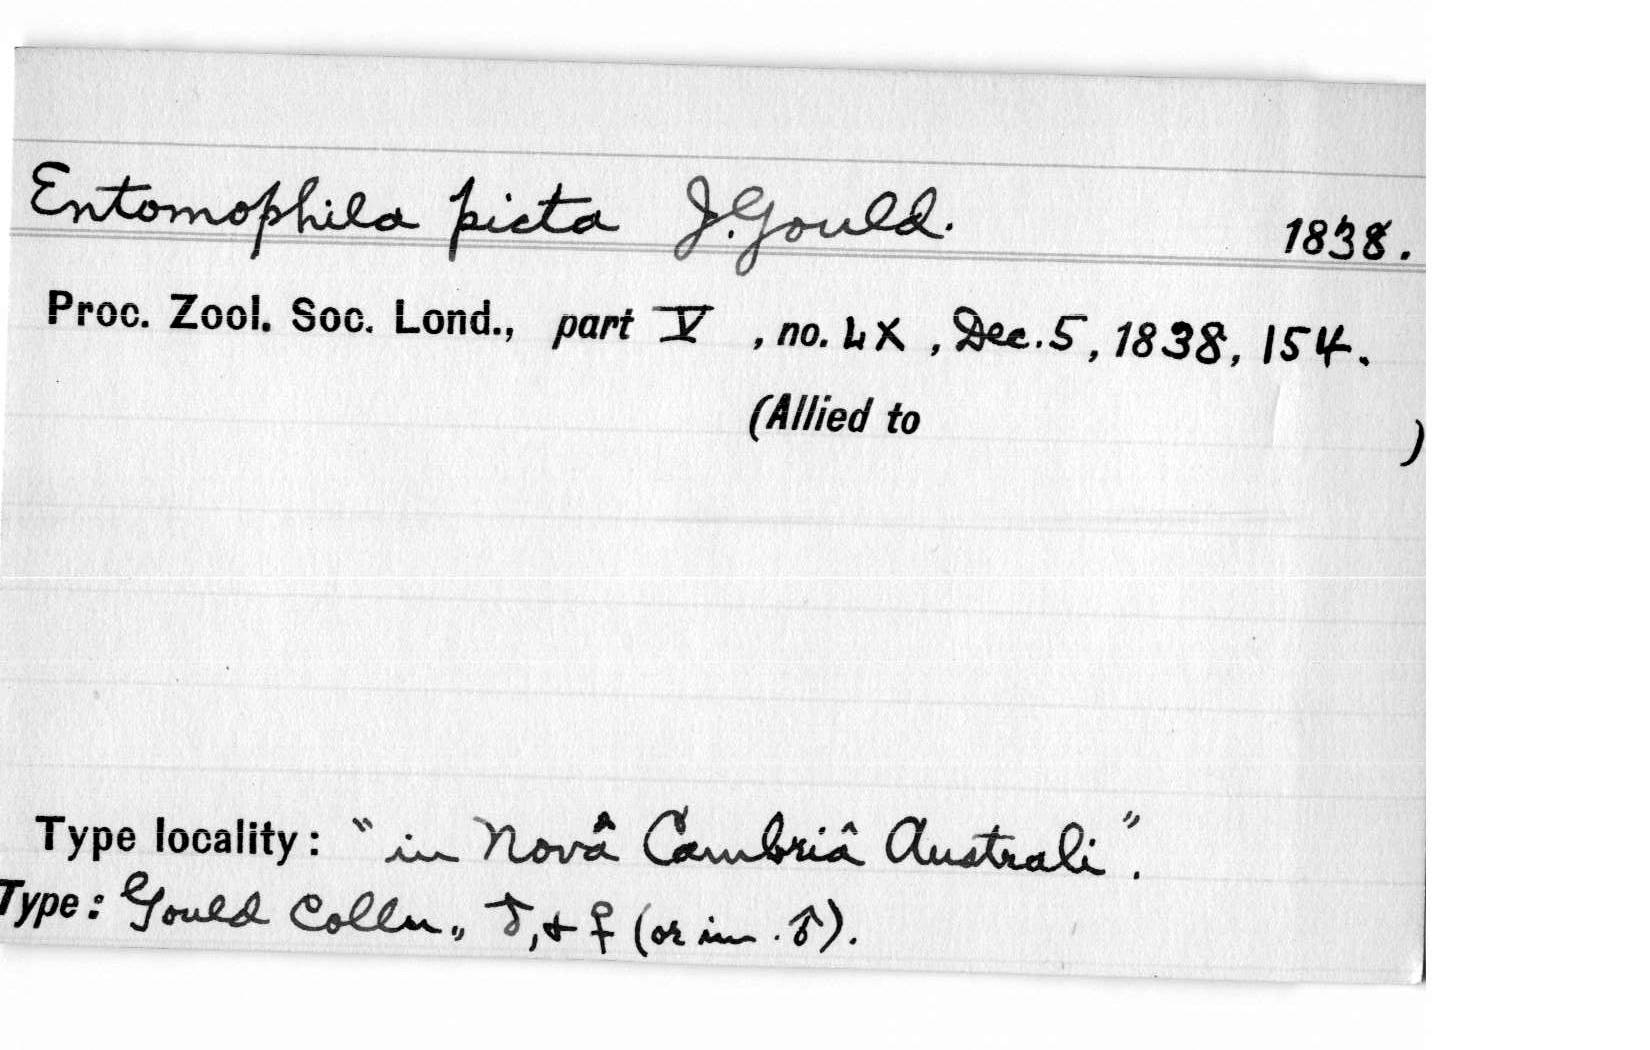 Entomophila picta J. Gould. 1838.
Proc. Zool. Soc. Lond., part V, no. LX, Dec. 5, 1838, 154.
(Allied to )
Type locality: "in Novâ Cambriâ Australi".
Type: Gould Colln., ♂, + ♀ (or im. ♂).